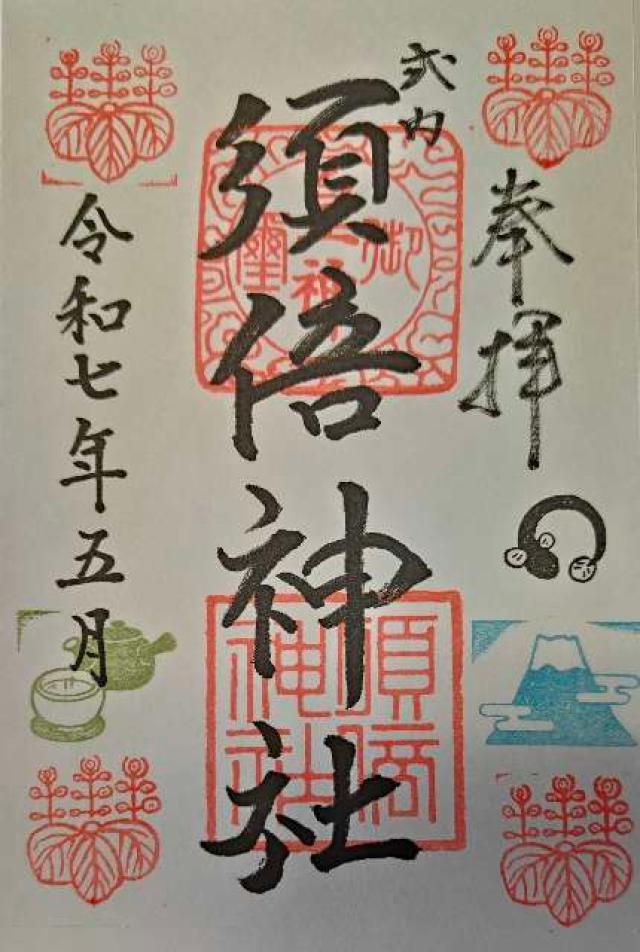 奉拝
式内
須倍神社
令和七年五月
御璽
須倍神社